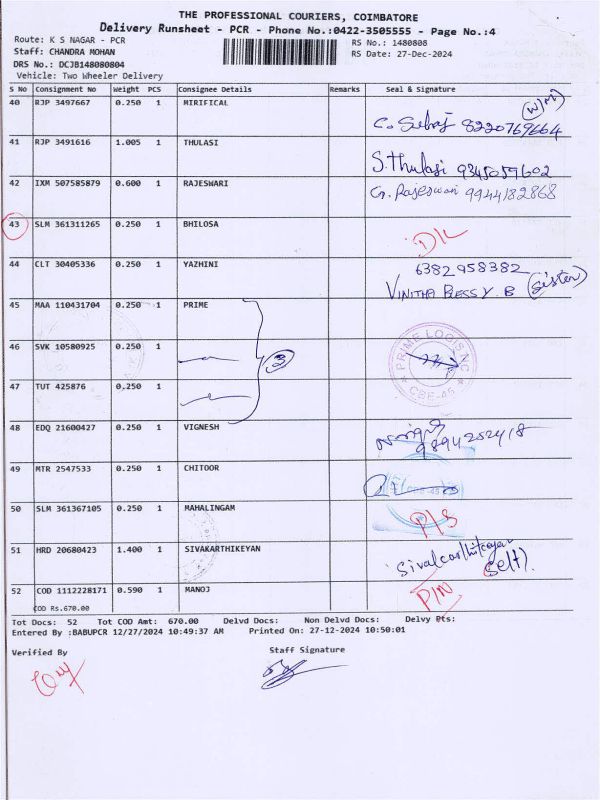 THE PROFESSIONAL COURIERS, COIMBATORE
Delivery Runsheet - PCR - Phone No.:0422-3505555 - Page No.:4
Route: K S NAGAR - PCR
RS No.: 1480808
Staff: CHANDRA MOHAN
RS Date: 27-Dec-2024
DRS No.: DCJB148080804
Vehicle: Two Wheeler Delivery
S No Consignment No Weight PCS Consignee Details Remarks Seal & Signature
40 RJP 3497667 0.250 1 MIRIFICAL
(W/M)
8220769664
41 RJP 3491616 1.005 1 THULASI
S.Thulasi 9345059602
42 IXM 507585879 0.600 1 RAJESWARI
G. Rajeswari 9944182868
43 SLM 361311265 0.250 1 BHILOSA
D/L
44 CLT 30405336 0.250 1 YAZHINI
6382958382
VINITHA BLESSY. B (Sister)
45 MAA 110431704 0.250 1 PRIME
46 SVK 10580925 0.250 1
3
PRIME LOGISINC
CBE-45
47 TUT 425876 0.250 1
48 EDQ 21600427 0.250 1 VIGNESH
9894252418
49 MTR 2547533 0.250 1 CHITOOR
50 SLM 361367105 0.250 1 MAHALINGAM
P/S
51 HRD 20680423 1.400 1 SIVAKARTHIKEYAN
Sivakarthikeyan
(Self).
52 COD 1112228171 0.590 1 MANOJ
P/N
COD Rs.670.00
Tot Docs: 52 Tot COD Amt: 670.00 Delvd Docs: Non Delvd Docs: Delvy Pts:
Entered By :BABUPCR 12/27/2024 10:49:37 AM Printed On: 27-12-2024 10:50:01
Verified By
Staff Signature